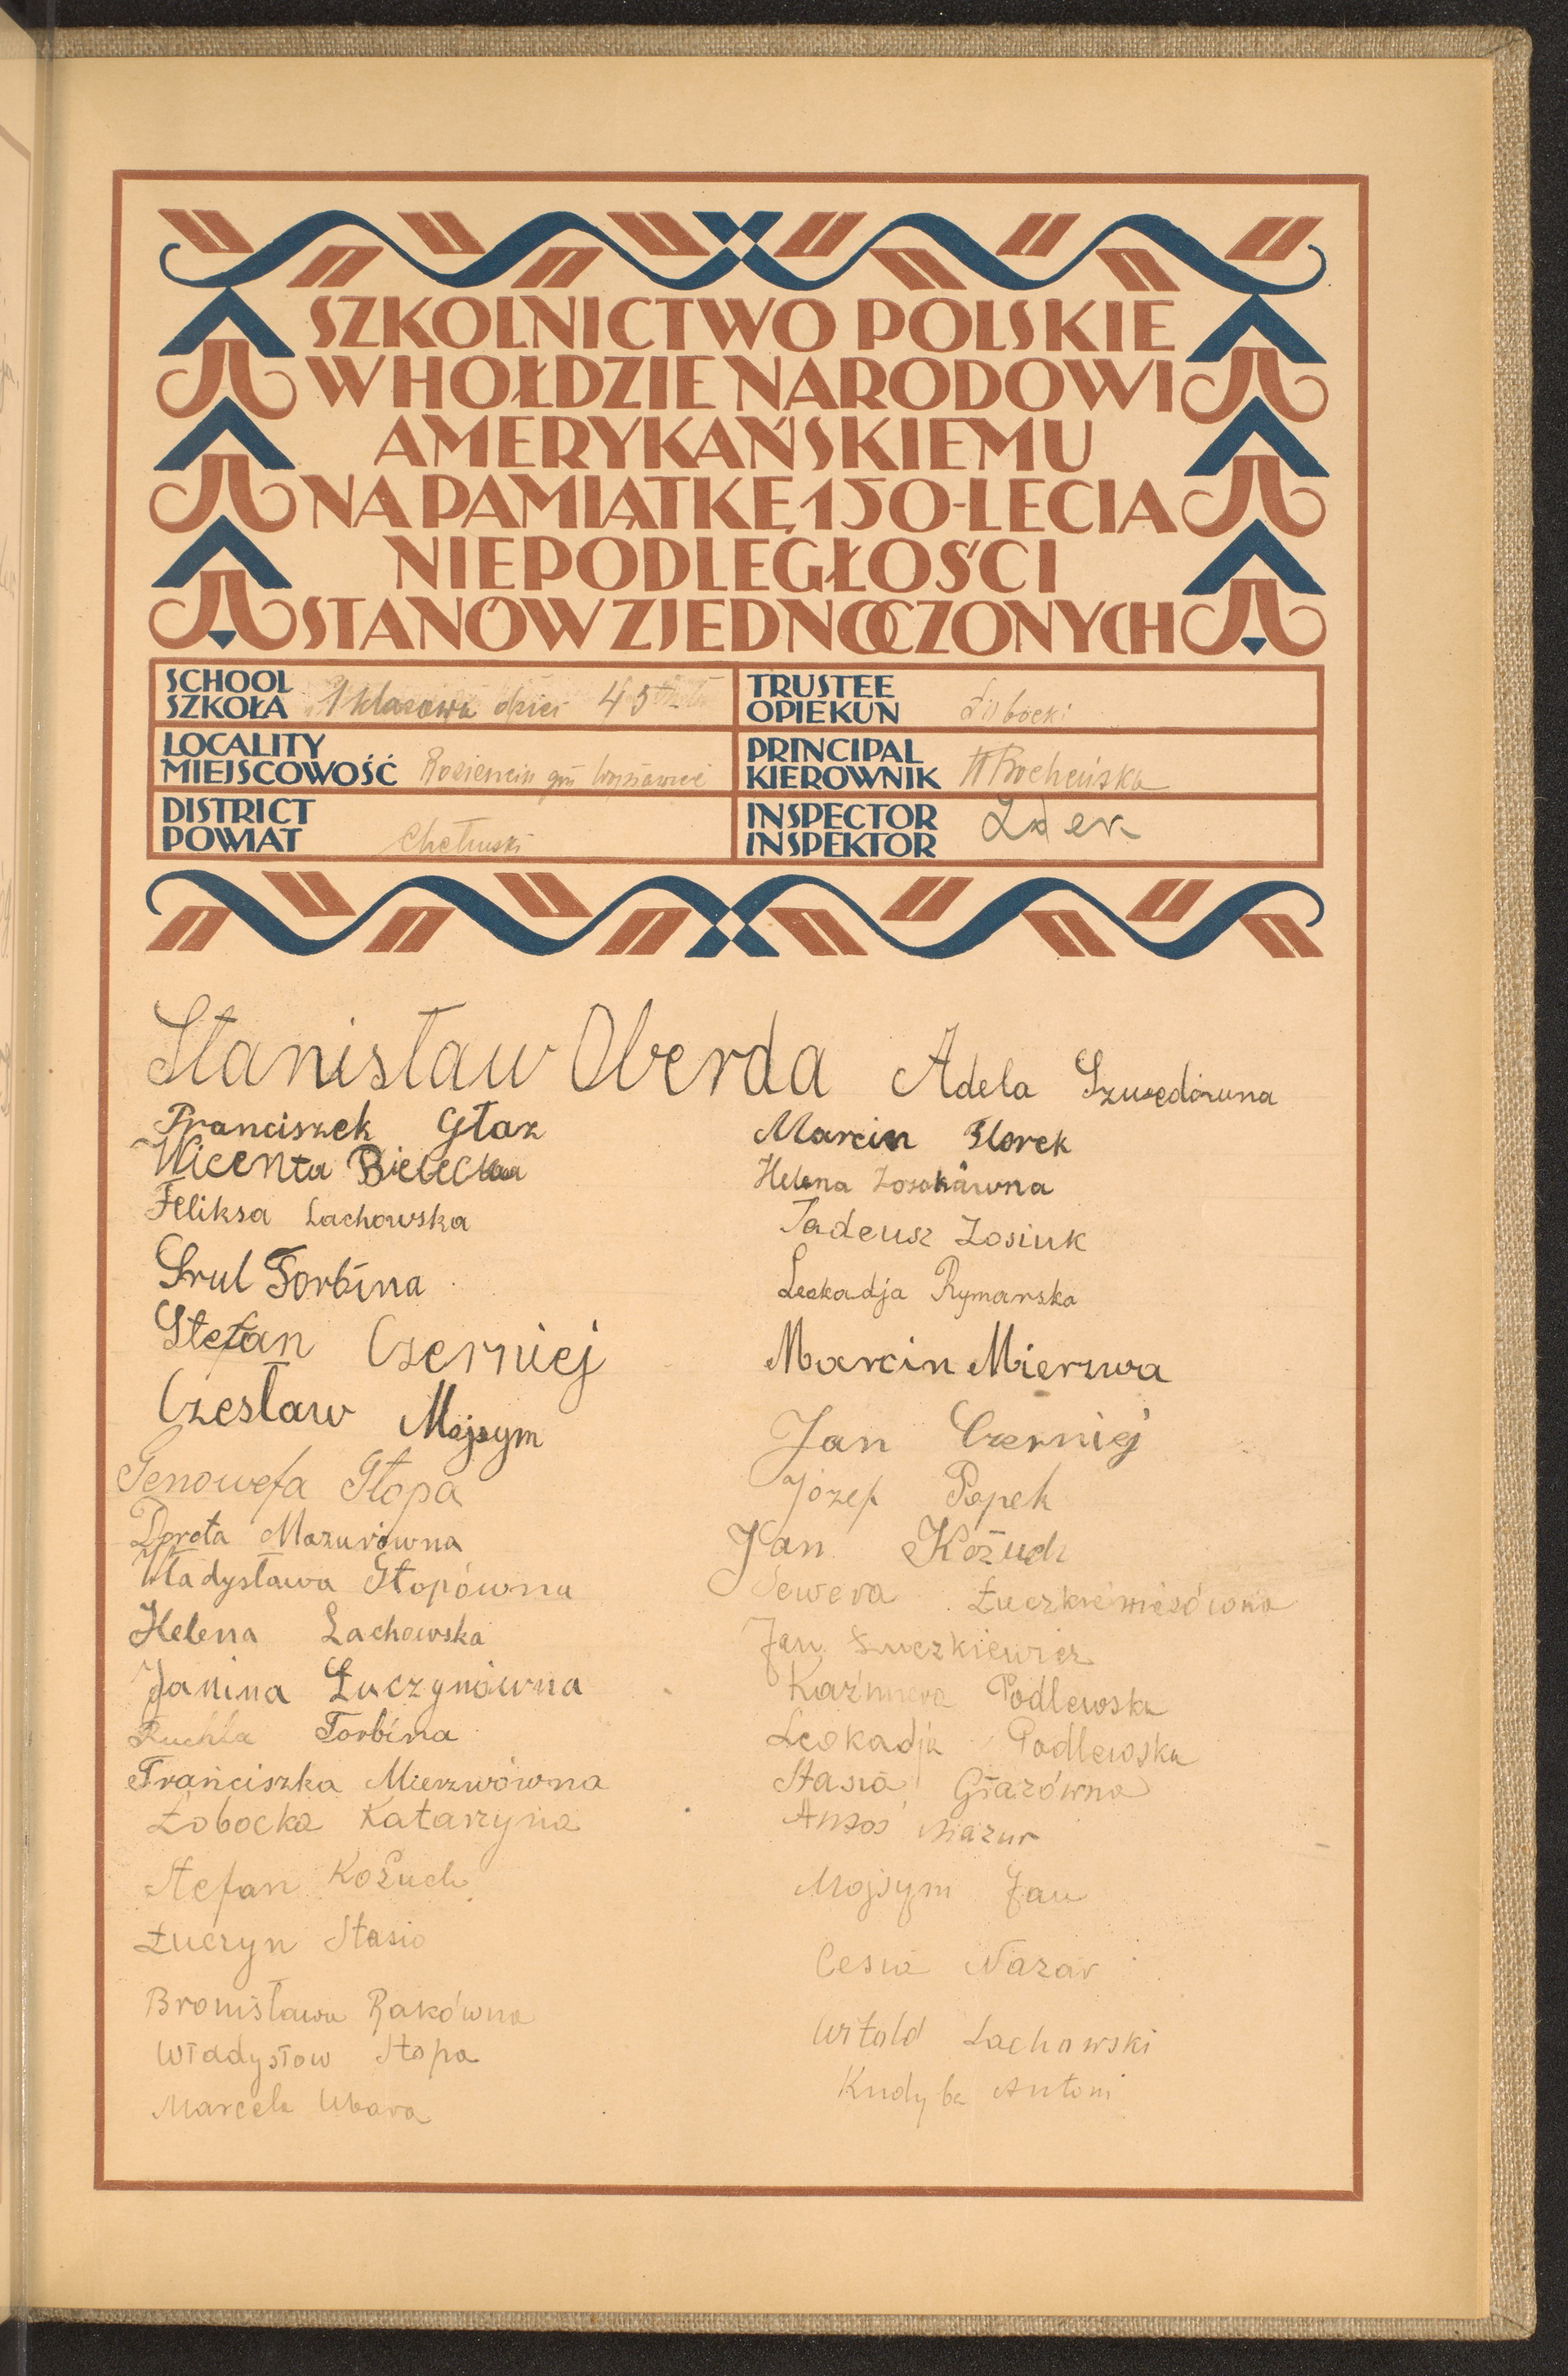 SZKOLNICTWO POLSKIE
W HOŁDZIE NARODOWI
AMERYKAŃSKIEMU
NA PAMIĄTKĘ 150-LECIA
NIEPODLEGŁOŚCI
STANÓW ZJEDNOCZONYCH
SCHOOL
SZKOŁA 1 klasowa dzieci 45
TRUSTEE
OPIEKUN Łobocki
LOCALITY
MIEJSCOWOŚĆ gm
PRINCIPAL
KIEROWNIK Bocheńska
DISTRICT
POWIAT Chełmski
INSPECTOR
INSPEKTOR
Stanisław Oberda
Adela Szwedówna
Franciszek Głaz
Marcin Florek
Wicenta Bielecka
Helena
Feliksa Lachowska
Tadeusz Zosiuk
Srul Torbina
Leokadja Rymarska
Stefan Czerniej
Marcin Mierzwa
Czesław Mojsym
Jan Czerniej
Genowefa Stopa
Józef Popek
Dorota Mazurówna
Jan Kożuch
Władysława Stopówna
Sewera Łuczkiewiczówna
Helena Lachowska
Jan Łuczkiewicz
Janina Łuczynówna
Kaźmiera Podlewska
Ruchla Torbina
Leokadja Podlewska
Franciszka Mierzwówna
Stasia Głazówna
Łobocka Katarzyna
Antoś Mazur
Stefan Kożuch
Mojsym Jan
Łuczyn Stasio
Cesia Nazar
Bronisława Rakówna
Witold Lachowski
Władysław Stopa
Kudyba Antoni
Marcela